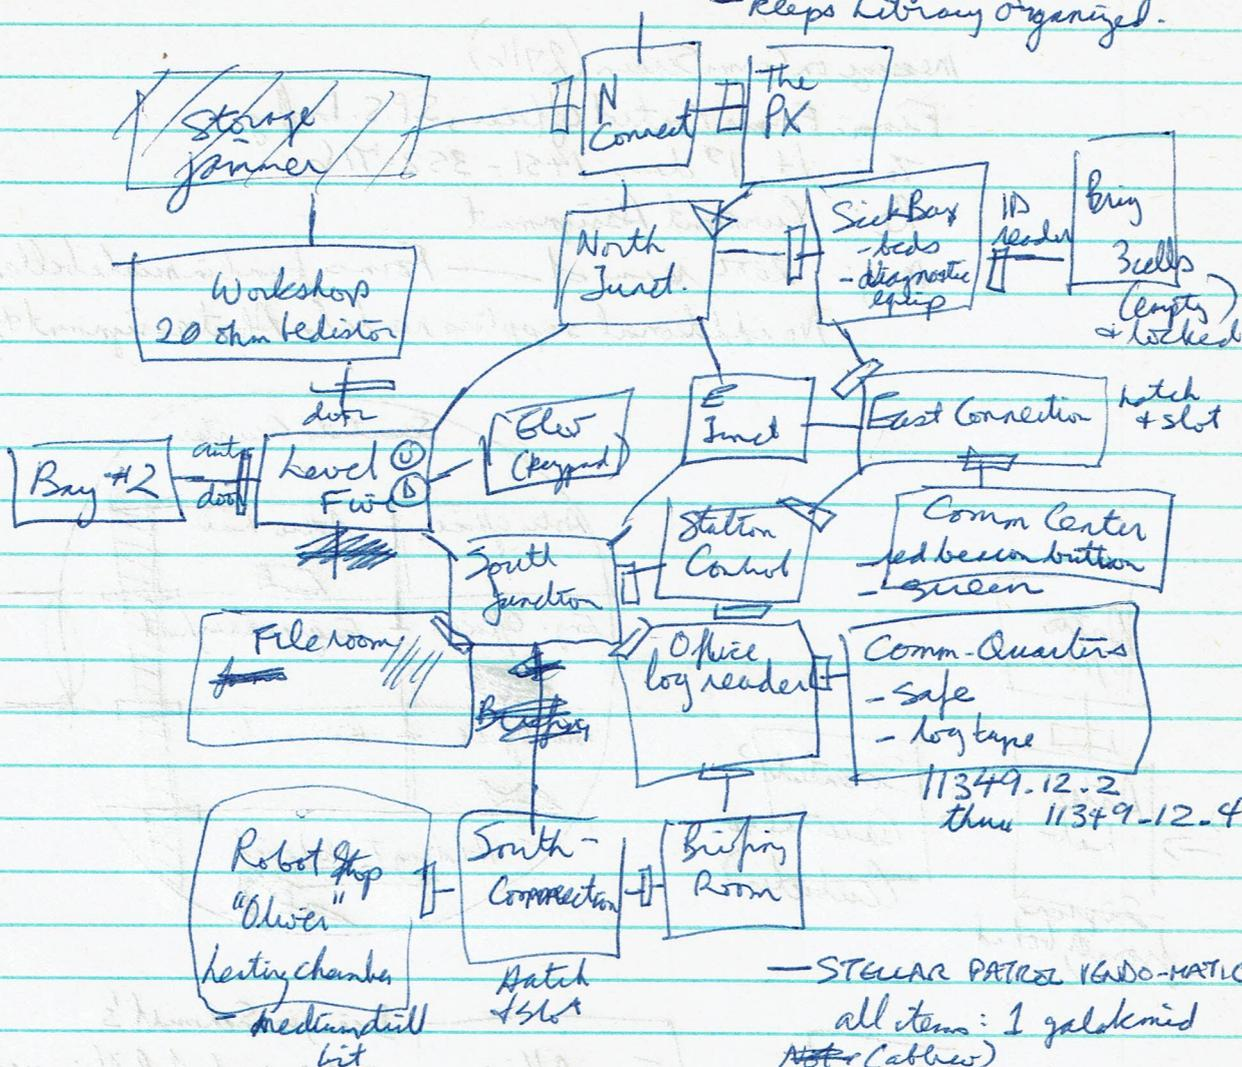 - Keeps Library organized.
Storage
jammer
N
Connect
The
PX
Workshop
20 ohm bedistor
door
North
Junct.
SickBay
- beds
- diagnostic
equip
ID
reader
Brig
3 cells
(empty)
& locked
Bay #2
auto
door
Level
Five
U
D
Elev
(keypad)
E
Junct
East Connection
hatch
& slot
Comm Center
- red beacon button
- screen
Station
Control
South
Junction
Fileroom
Office
log reader
Comm-Quarters
- safe
- log tape
11349.12.2
thru 11349.12.4
Robot Shop
"Oliver"
testing chamber
- medium drill
bit
South-
Connection
Hatch
& Slot
Briefing
Room
— STELLAR PATROL VENDO-MATIC
all items: 1 galakmid
(abbrev)